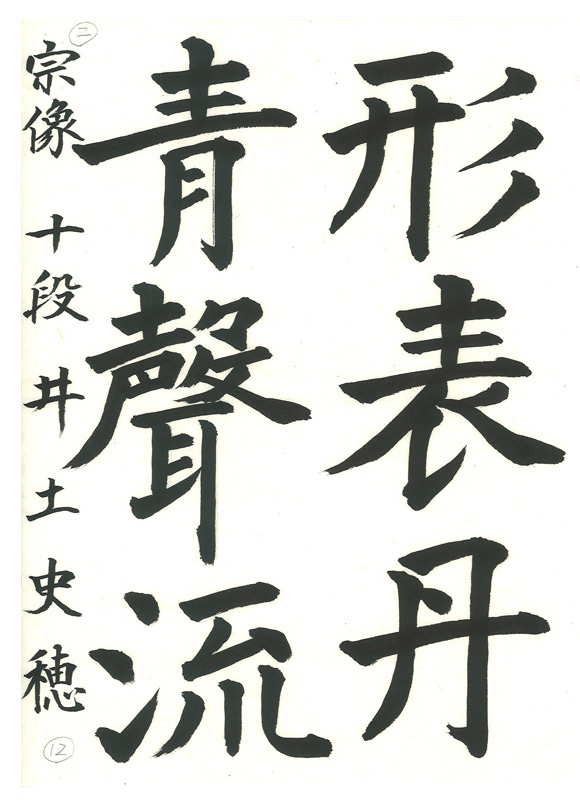 形表丹
青聲流
㊁
宗像 十段 井土史穂
⑫